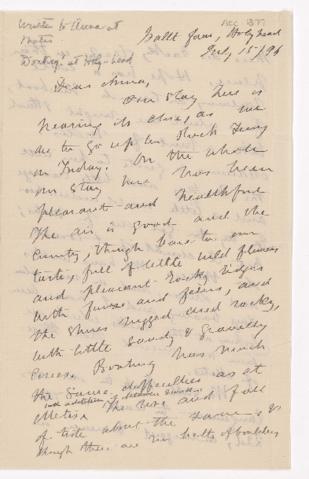 Written to Anna at
Metis
ACC 1377
Holyhead
July 15/96
Dear Anna,
Our stay here is
nearing its close, as we
are to go up to
on Friday. On the whole
our stay here has been
pleasant and healthful
The air is good and the
Country, though bare to our
taste, full of little wild flowers
and pleasant rocky ridges
with furze and ferns, and
the shores rugged and rocky,
with little sandy & gravelly
coves. Boating has much
the same difficulties as at
Metis.
The rise and fall
of tide about the same &
though there are no belts of boulders